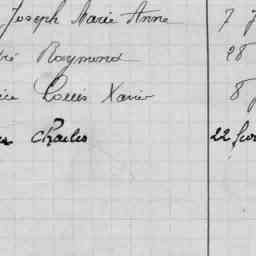 Joseph Marie Anne 7
Raymond 28
Louis Xavier 8
Charles 22